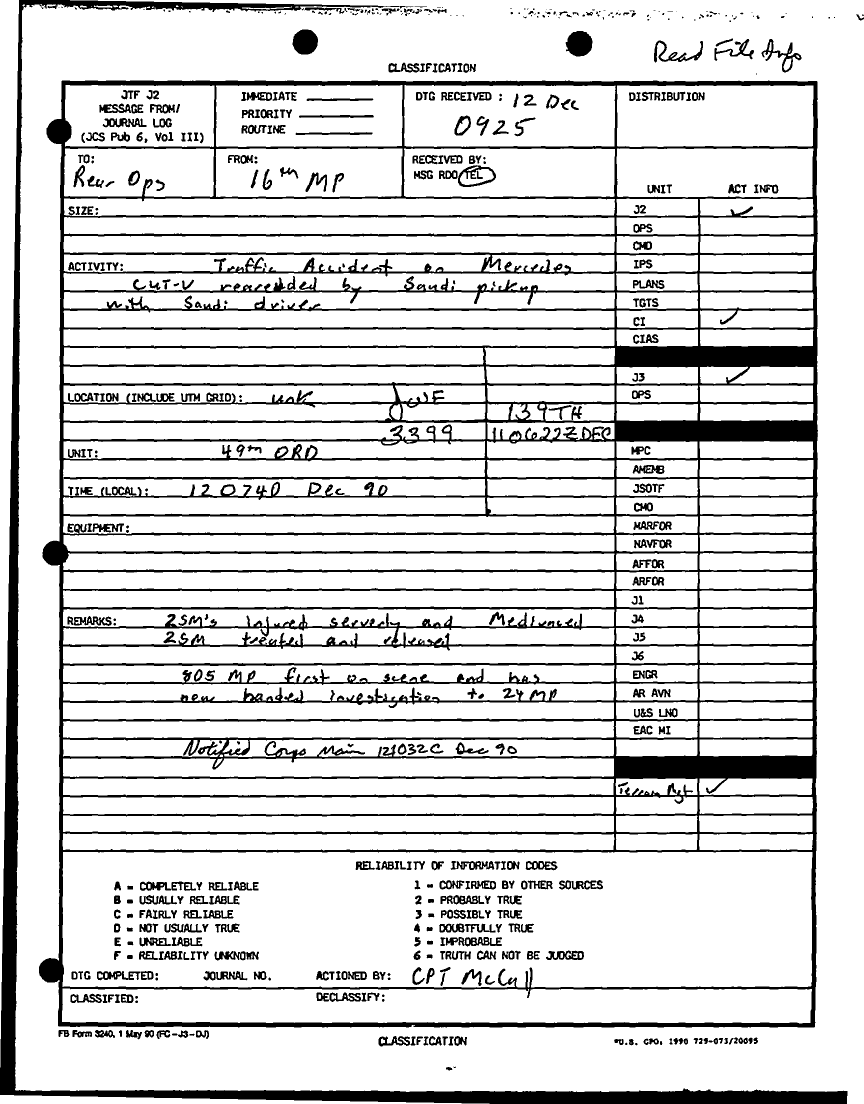 Read File Info
CLASSIFICATION
JTF J2
MESSAGE FROM/
JOURNAL LOG
(JCS Pub 6, Vol III)
IMMEDIATE
PRIORITY
ROUTINE
DTG RECEIVED : 12 Dec
0925
DISTRIBUTION
TO:
Rear Ops
FROM:
16th MP
RECEIVED BY:
MSG RDO TEL
UNIT ACT INFO
SIZE:
J2 ✓
OPS
CMD
ACTIVITY: Traffic Accident on Mercedes
IPS
CUT-V rearedded by Saudi pickup
PLANS
with Saudi driver
TGTS
CI ✓
CIAS
J3 ✓
LOCATION (INCLUDE UTM GRID): unk
OPS
139TH
3399 110622Z DEC
UNIT: 49th ORD
MPC
AMEMB
TIME (LOCAL): 120740 Dec 90
JSOTF
CMO
EQUIPMENT:
MARFOR
NAVFOR
AFFOR
ARFOR
J1
REMARKS: 2SM's Injured serverly and Medivaced
J4
2SM treated and released
J5
J6
805 MP first on scene and has
ENGR
new handed investigation to 24 MP
AR AVN
U&S LNO
EAC MI
Notified Corps Main 121032C Dec 90
Terrain Mgt ✓
RELIABILITY OF INFORMATION CODES
A = COMPLETELY RELIABLE
B = USUALLY RELIABLE
C = FAIRLY RELIABLE
D = NOT USUALLY TRUE
E = UNRELIABLE
F = RELIABILITY UNKNOWN
1 = CONFIRMED BY OTHER SOURCES
2 = PROBABLY TRUE
3 = POSSIBLY TRUE
4 = DOUBTFULLY TRUE
5 = IMPROBABLE
6 = TRUTH CAN NOT BE JUDGED
DTG COMPLETED: JOURNAL NO. ACTIONED BY: CPT McCall
CLASSIFIED: DECLASSIFY:
FB Form 3240, 1 May 90 (FC-J3-DJ)
CLASSIFICATION
*U.S. GPO: 1990 729-073/20095